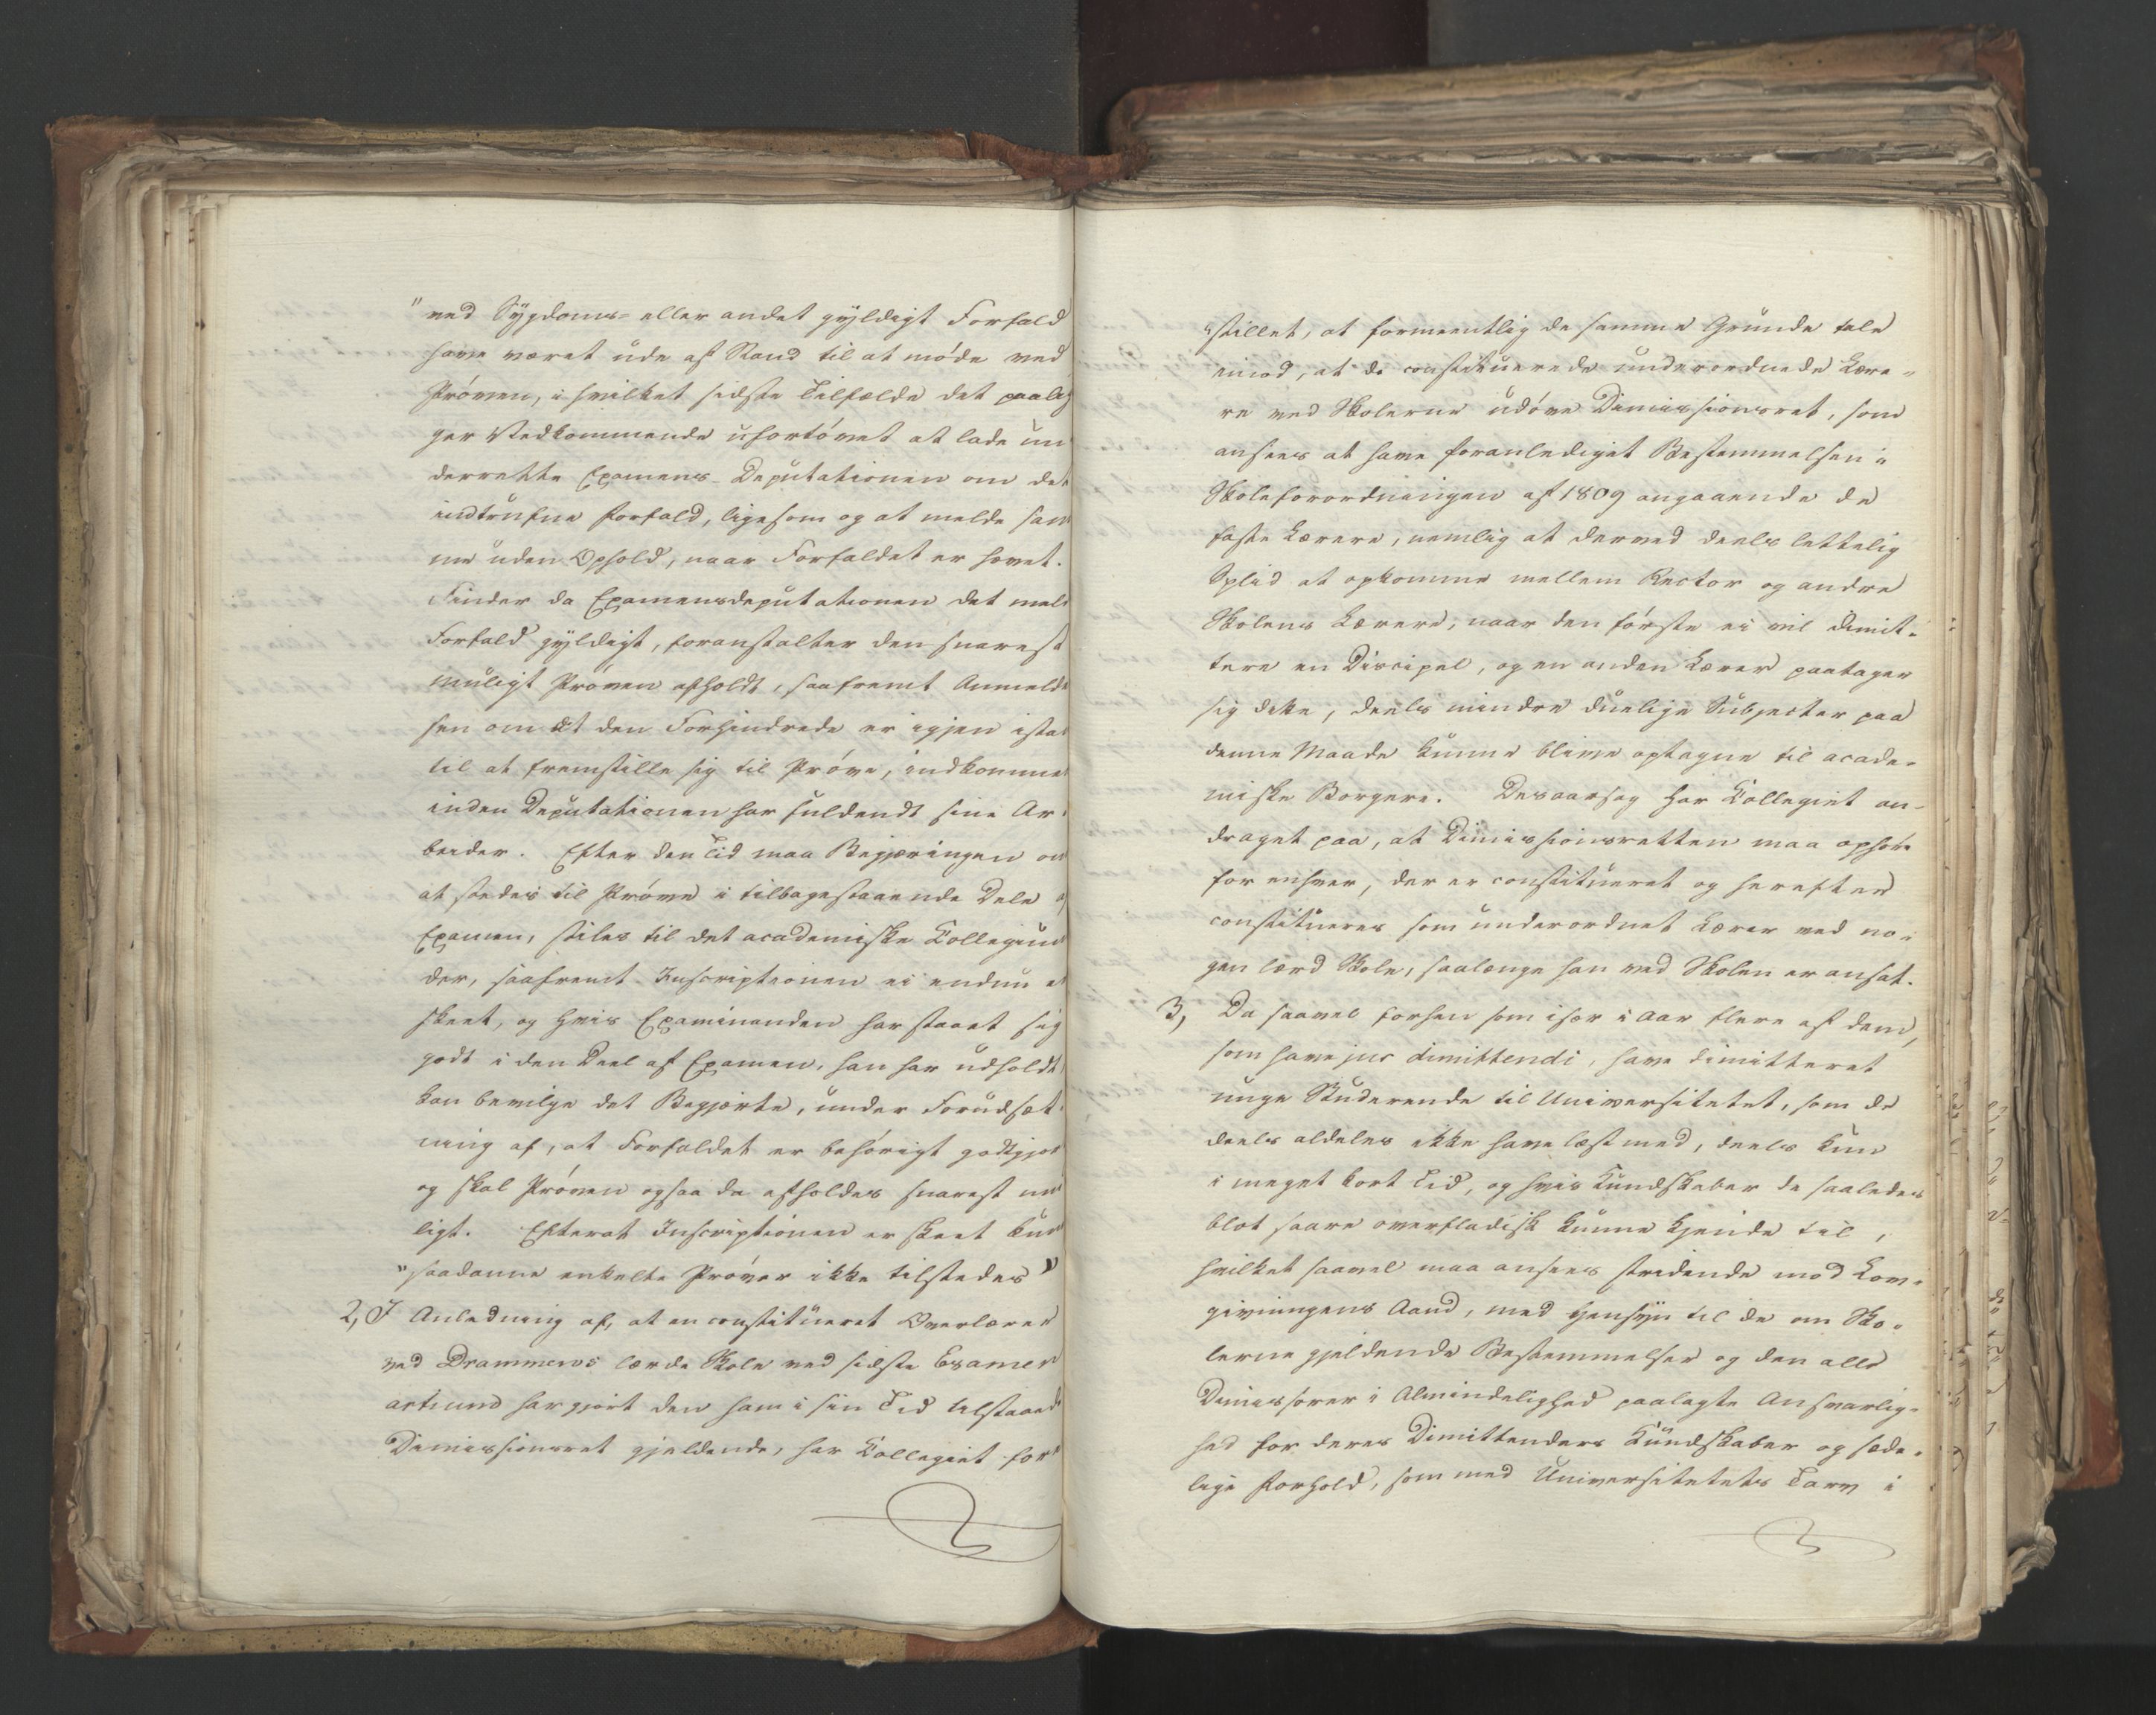 "ved Sygdoms- eller andet gyldigt Forfald
have været ude af Stand til at møde ved
Prøven, i hvilket sidste Tilfælde det paalig
ger Vedkommende ufortøvet at lade un
derrette Examens-Deputationen om det
indtrufne Forfald, ligesom og at melde sam
me uden Ophold, naar Forfaldet er hævet.
Finder da Examensdeputationen det meldte
Forfald gyldigt, foranstalter den snarest
muligt Prøven afholdt, saafremt Anmeldel
sen om at den Forhindrede er igjen istand
til at fremstille sig til Prøve, indkommer
inden Deputationen har fuldendt sine Ar-
beider. Efter den Tid maa Begjæringen om
at stedes til Prøve i tilbagestaaende Dele af
Examen, stiles til det academiske Collegium
der, saafremt Inscriptionen ei endnu er
skeet, og hvis Examinanden har staaet sig
godt i den Deel af Examen, han har udholdt,
kan bevilge det Begjærte, under Forudsæt-
ning af, at Forfaldet er behørigt godtgjort
og skal Prøven ogsaa da afholdes snarest mu
ligt. Efterat Inscriptionen er skeet kun
"saadanne enkelte Prøver ikke tilstedes"
2, I Anledning af, at en constitueret Overlærer
ved Drammens lærde Skole ved sidste Examen
artium har gjort den ham i sin Tid tilstaaede
Dimissionsret gjeldende, har Collegiet fore
"stillet, at formeentlig de samme Grunde tale
imod, at de constituerede underordnede Lære-
re ved Skolerne udøve Dimissionsret, som
ansees at have foranlediget Bestemmelsen i
Skoleforordningen af 1809 angaaende de
faste Lærere, nemlig at derved deels lettelig
Splid at opkomme mellem Rector og andre
Skolens Lærere, naar den første ei vil dimit-
tere en Discipel, og en anden Lærer paatager
sig dette, deels mindre duelige Subjecter paa
denne Maade kunne blive optagne til acade-
miske Borgere. Desaarsag har Collegiet an-
draget paa, at Dimissionsretten maa ophøre
for enhver, der er constitueret og herefter
constitueres som underordnet Lærer ved no-
gen lærd Skole, saalænge han ved Skolen er ansat.
3, Da saavel forhen som især i Aar flere af dem,
som have jus dimittendi, have dimitteret
unge Studerende til Universitetet, som de
deels aldeles ikke have læst med, deels kun
i meget kort Tid, og hvis Kundskaber de saaledes
blot saare overfladisk kunne kjende til,
hvilket saavel maa ansees stridende mod Lov-
givningens Aand, med Hensyn til de om Sko-
lerne gjeldende Bestemmelser og den alle
Dimissorer i Almindelighed paalagte Ansvarlig-
hed for deres Dimittenders Kundskaber og sæde-
lige Forhold, som med Universitetets Tarv i